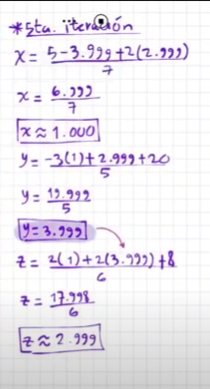 *5ta. iteración
x = 5-3.999+2(2.999)/7
x = 6.999/7
x ≈ 1.000
y = -3(1)+2.999+20/5
y = 19.999/5
y = 3.999
z = 2(1)+2(3.999)+8/6
z = 17.998/6
z ≈ 2.999